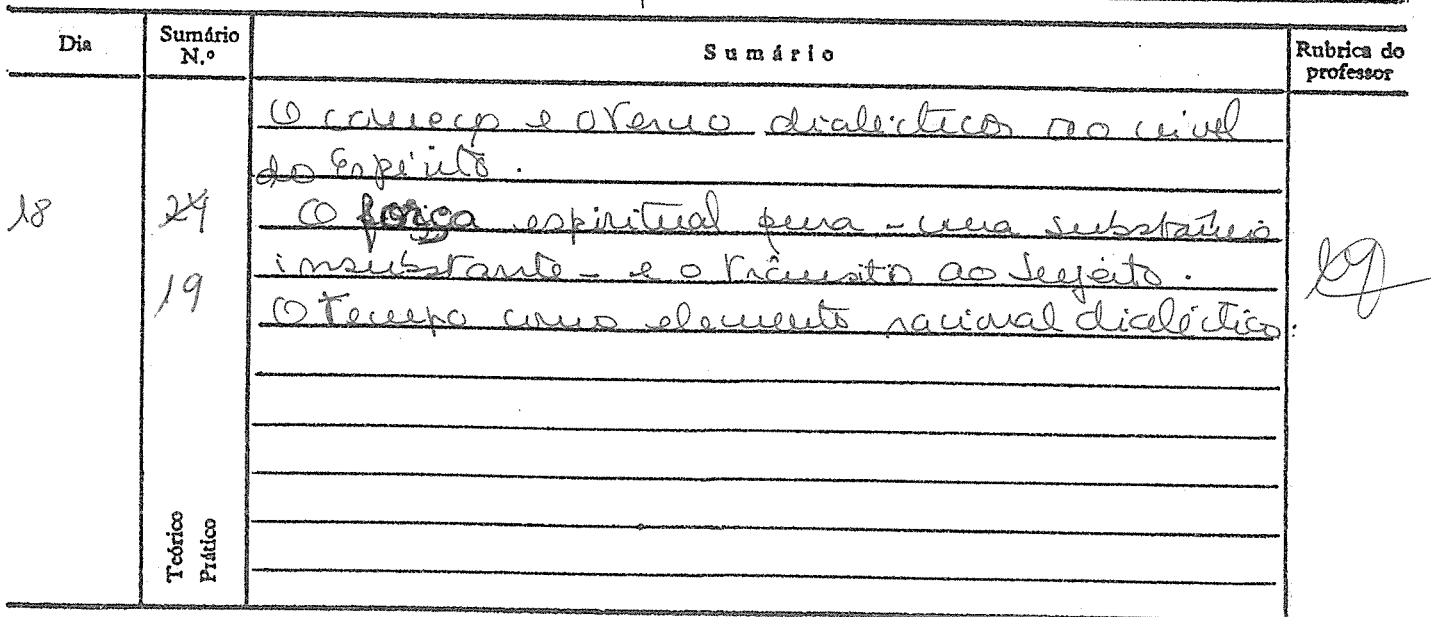 Dia Sumário N.º Sumário Rubrica do professor
O começo e o termo dialécticos ao nível
do Espírito.
18 O força espiritual pura - uma substância
insubstante - e o trânsito ao Sujeito.
19
O Tempo como elemento racional dialéctico.
Teórico
Prático